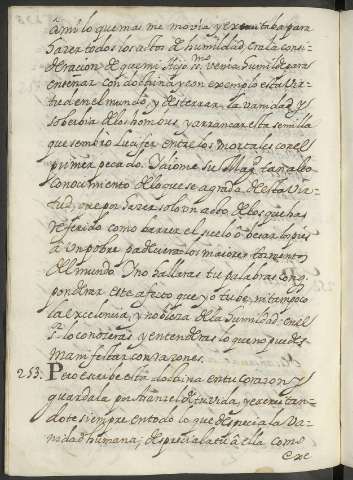 à mi lo que mas me movia y exercitaba para
haçer todos los actos de humildad, era la consi-
deracion de que mi Hijo ss.mo venia humilde para
enseñar con doctrina y con exemplo esta Vir-
tud en el mundo, y desterrar la vanidad, y
soberbia de los hombres, y arrancar esta semilla
que sembrò Lucifer entre los mortales con el
primer pecado. Y diome su Mag.d tan alto
conocimiento de lo que se agrada de esta Vir-
tud, que por haçer solo un acto de los que has
referido, como barrer el suelo ò besar los pies
à un pobre padeciera los maiores tormentos
del mundo. Y no hallaras tu palabras con q.
ponderar este afecto que yo tube, ni tampoco
la excelencia, y nobleza de la humildad; en el
S.r lo conoceras, y entenderas lo que no puedes
manifestar con raçones.
253. Pero escribe esta doctrina en tu coraçon y
guardala por Aranzel de tu vida, y exercitan-
dote siempre en todo lo que desprecia la Va-
nidad humana; despreciala tu à ella como
exe